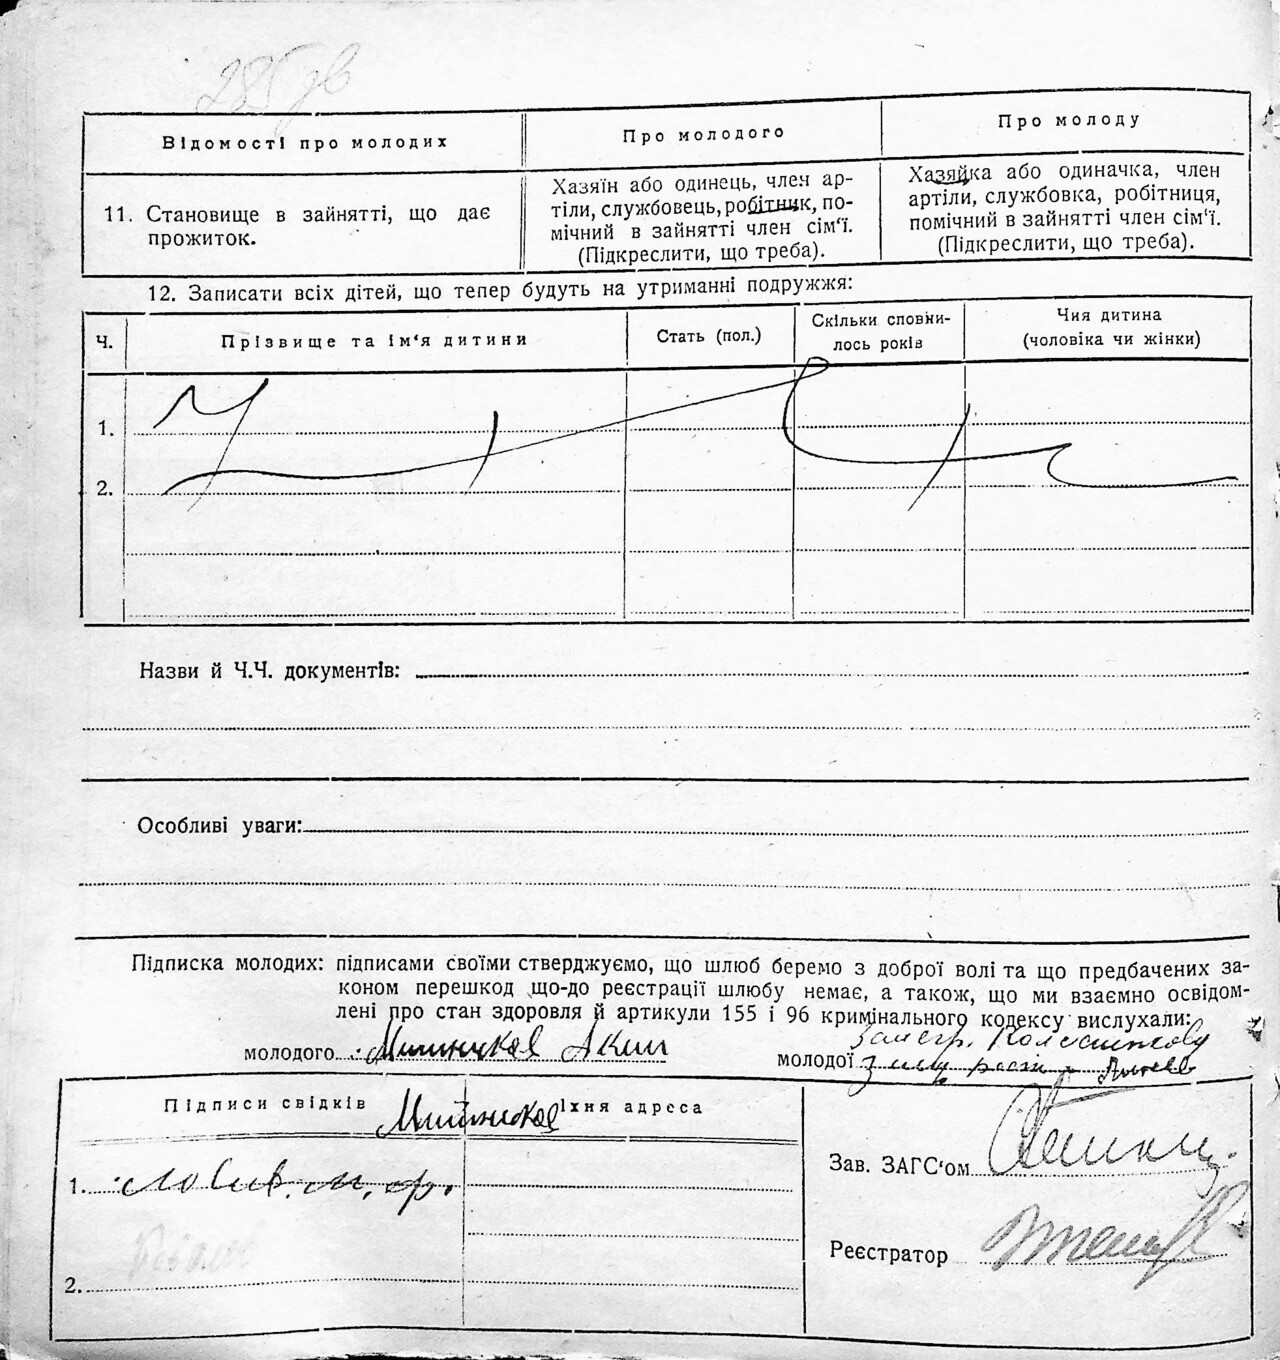 285 зв
Відомості про молодих
Про молодого
Про молоду
11. Становище в зайнятті, що дає прожиток.
Хазяїн або одинець, член ар-
тіли, службовець, робітник, по-
мічний в зайнятті член сім'ї.
(Підкреслити, що треба).
Хазяйка або одиначка, член
артіли, службовка, робітниця,
помічний в зайнятті член сім'ї.
(Підкреслити, що треба).
12. Записати всіх дітей, що тепер будуть на утриманні подружжя:
Ч.
Прізвище та ім'я дитини
Стать (пол.)
Скільки сповни-
лось років
Чия дитина
(чоловіка чи жінки)
1.
2.
Назви й Ч.Ч. документів:
Особливі уваги:
Підписка молодих: підписами своїми стверджуємо, що шлюб беремо з доброї волі та що предбачених за-
коном перешкод що-до реєстрації шлюбу немає, а також, що ми взаємно освідом-
лені про стан здоровля й артикули 155 і 96 кримінального кодексу вислухали:
молодого
молодої
Підписи свідків
Їхня адреса
1.
2.
Зав. ЗАГС'ом
Реєстратор